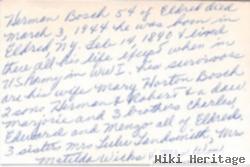 Herman Bosch 54 of Eldred died
March 3, 1944 he was born in
Eldred, N.Y. Feb 14, 1890 & lived
there all his life except when in
US Army in WW I. Ten survivors
are his wife Mary Horton Bosch
2 sons Herman & Robert & a dau
Marjorie and 3 brothers Charles,
Edward and Menzo all of Eldred
3 sisters Mrs Luke Mrs
Matilda
Heirloom Mis